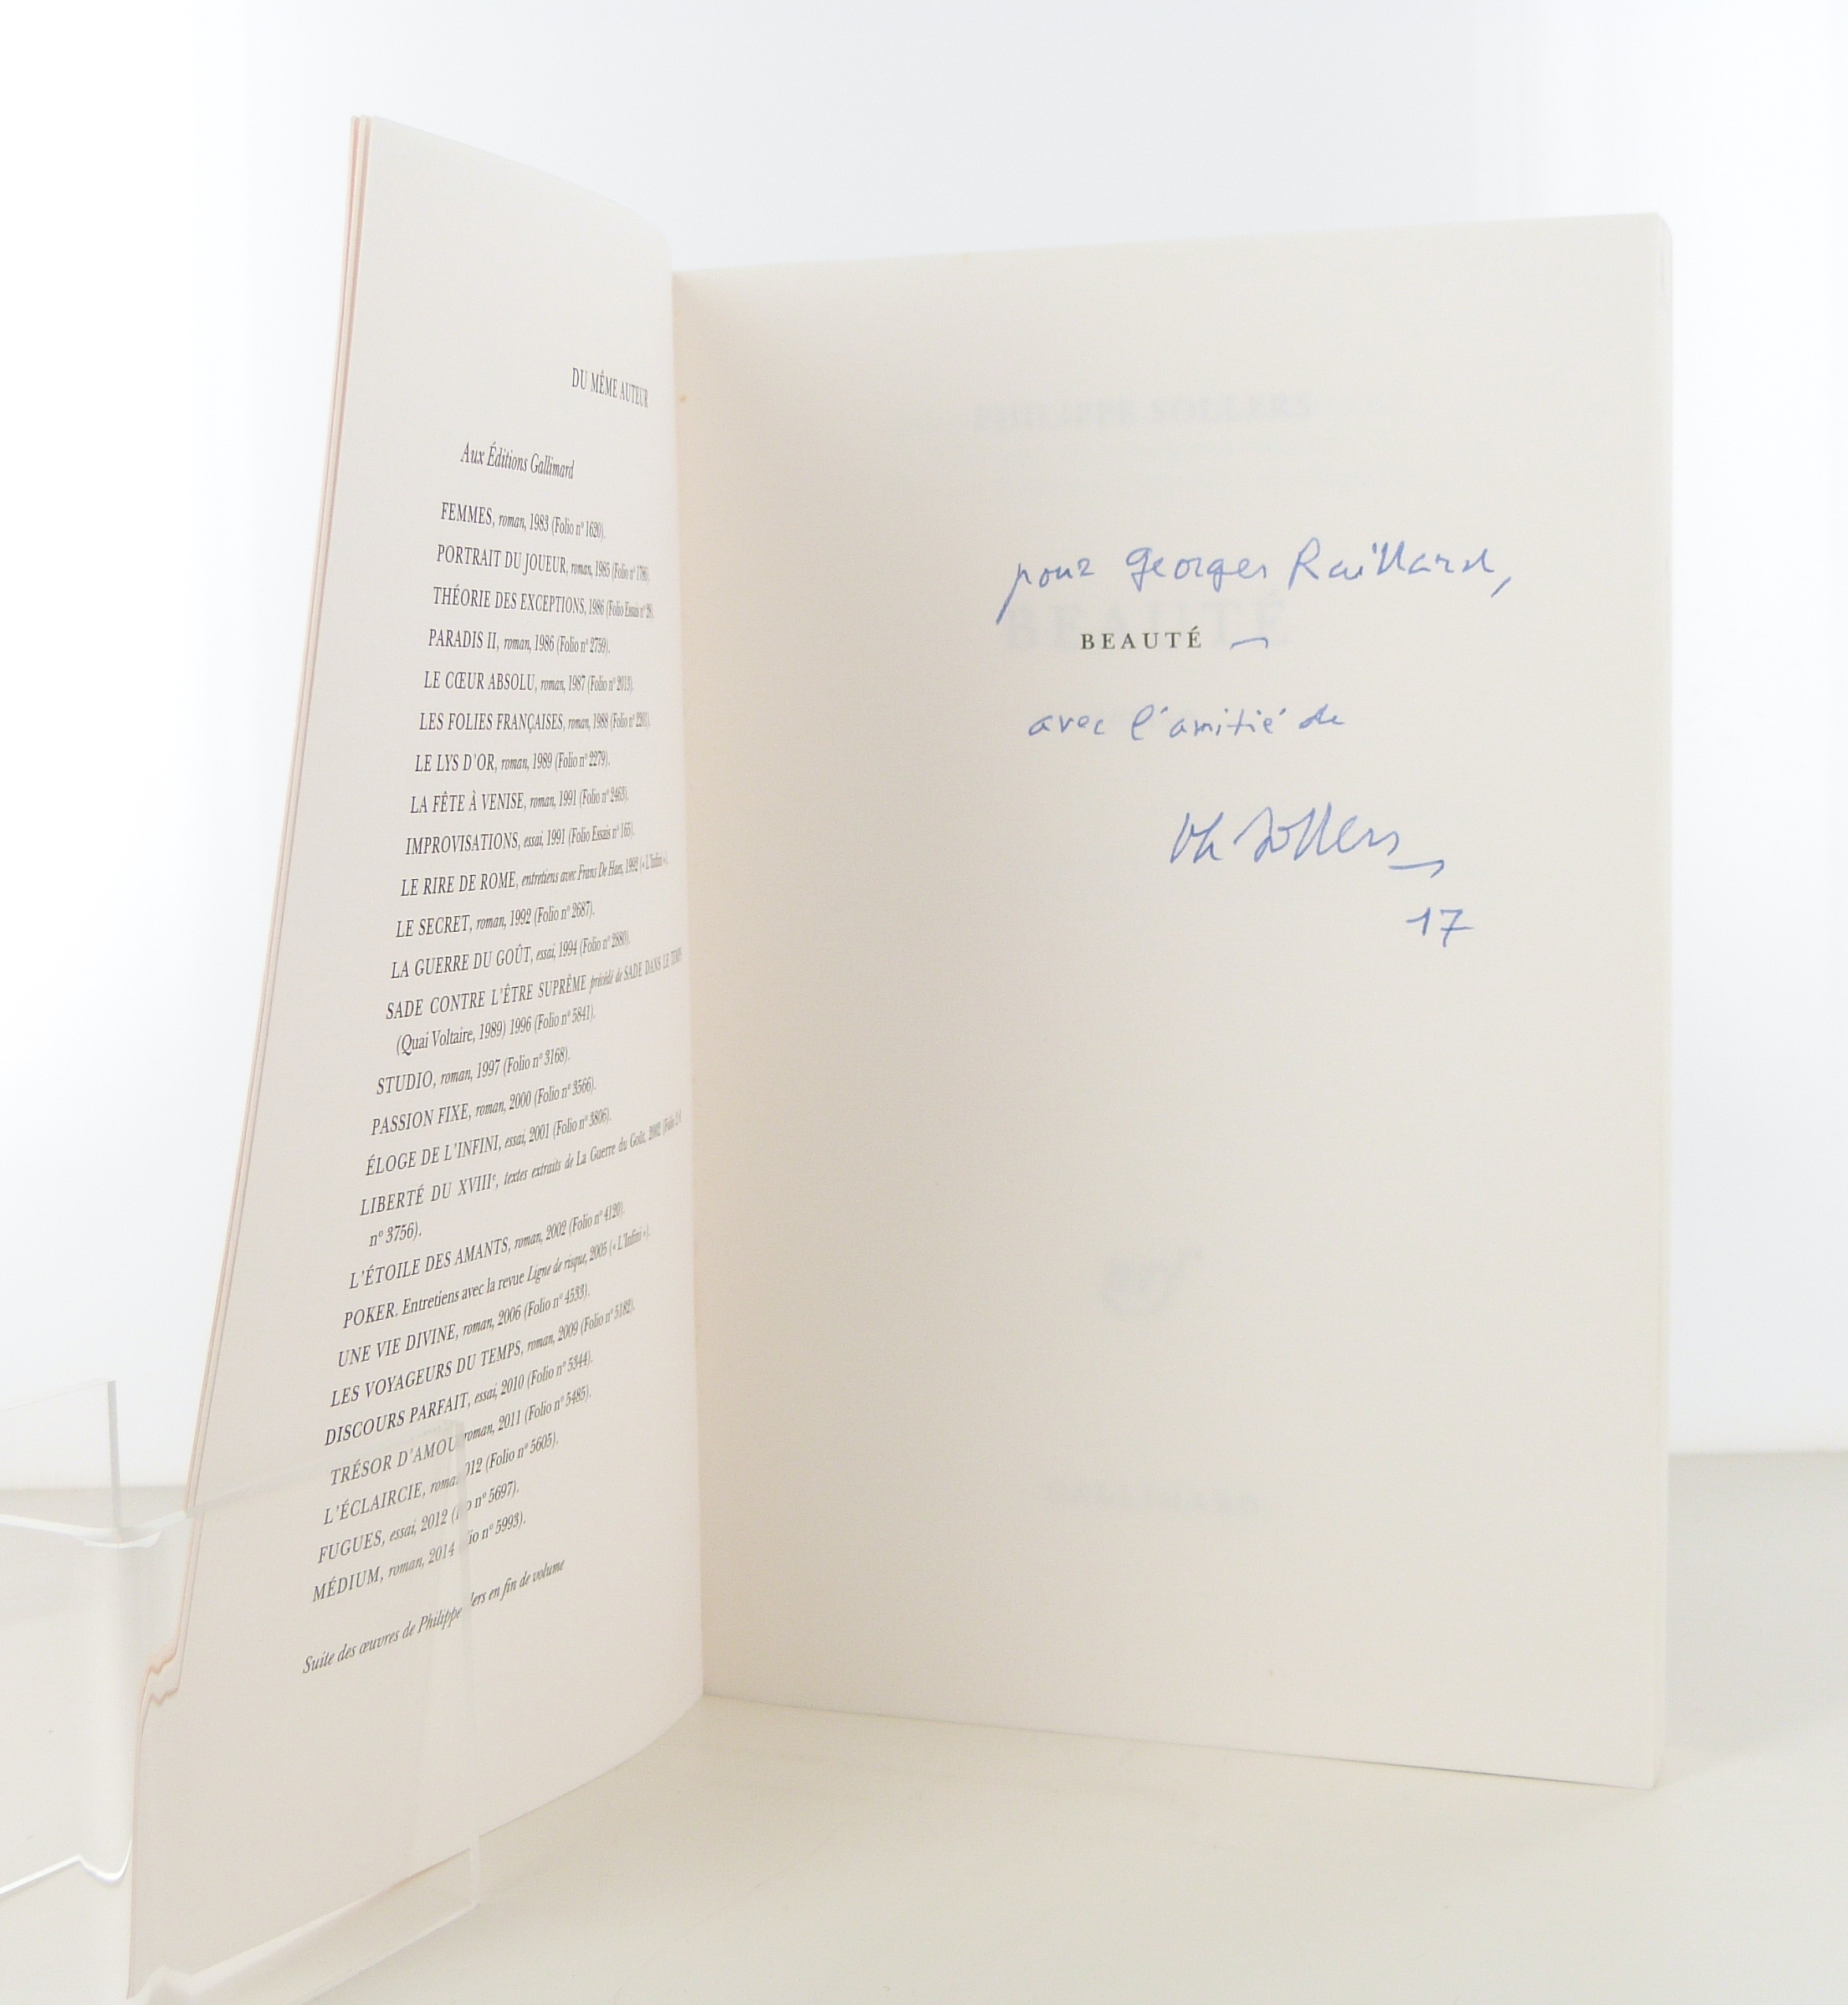 DU MÊME AUTEUR
Aux Éditions Gallimard
FEMMES, roman, 1983 (Folio nº 1620).
PORTRAIT DU JOUEUR, roman, 1985 (Folio nº 1786).
THÉORIE DES EXCEPTIONS, 1986 (Folio Essais nº 28).
PARADIS II, roman, 1986 (Folio nº 2759).
LE CŒUR ABSOLU, roman, 1987 (Folio nº 2013).
LES FOLIES FRANÇAISES, roman, 1988 (Folio nº 2201).
LE LYS D'OR, roman, 1989 (Folio nº 2279).
LA FÊTE À VENISE, roman, 1991 (Folio nº 2463).
IMPROVISATIONS, essai, 1991 (Folio Essais nº 165).
LE RIRE DE ROME, entretiens avec Frans De Haes, 1992 (« L'Infini »).
LE SECRET, roman, 1992 (Folio nº 2687).
LA GUERRE DU GOÛT, essai, 1994 (Folio nº 2880).
SADE CONTRE L'ÊTRE SUPRÊME précédé de SADE DANS LE TEMPS
(Quai Voltaire, 1989) 1996 (Folio nº 5841).
STUDIO, roman, 1997 (Folio nº 3168).
PASSION FIXE, roman, 2000 (Folio nº 3566).
ÉLOGE DE L'INFINI, essai, 2001 (Folio nº 3806).
LIBERTÉ DU XVIIIe, textes extraits de La Guerre du Goût, 2002 (Folio 2 €
nº 3756).
L'ÉTOILE DES AMANTS, roman, 2002 (Folio nº 4120).
POKER. Entretiens avec la revue Ligne de risque, 2005 (« L'Infini »).
UNE VIE DIVINE, roman, 2006 (Folio nº 4533).
LES VOYAGEURS DU TEMPS, roman, 2009 (Folio nº 5182).
DISCOURS PARFAIT, essai, 2010 (Folio nº 5344).
TRÉSOR D'AMOU roman, 2011 (Folio nº 5485).
L'ÉCLAIRCIE, roma 012 (Folio nº 5605).
FUGUES, essai, 2012 ( o nº 5697).
MÉDIUM, roman, 2014 lio nº 5993).
Suite des œuvres de Philippe lers en fin de volume
PHILIPPE SOLLERS
pour Georges Raillard,
BEAUTÉ
BEAUTÉ
avec l'amitié de
Ph Sollers
17
nrf
GALLIMARD